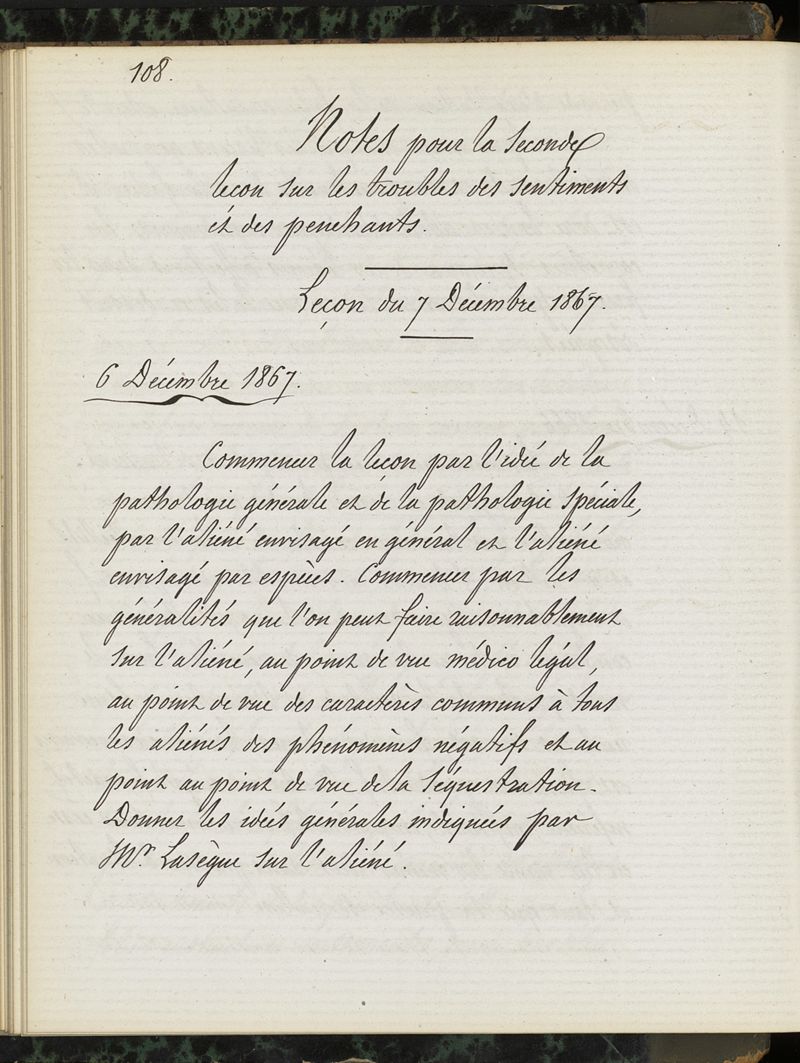 108.
Notes pour la seconde
leçon sur les troubles des sentiments
et des penchants.
Leçon du 7 Décembre 1867.
6 Décembre 1867.
Commencer la leçon par l'idée de la
pathologie générale et de la pathologie spéciale,
par l'aliéné envisagé en général et l'aliéné
envisagé par espèces. Commencer par les
généralités que l'on peut faire raisonnablement
sur l'aliéné, au point de vue médico légal,
au point de vue des caractères communs à tous
les aliénés des phénomènes négatifs et au
point au point de vue de la séquestration.
Donner les idées générales indiquées par
Mr Lasègue sur l'aliéné.